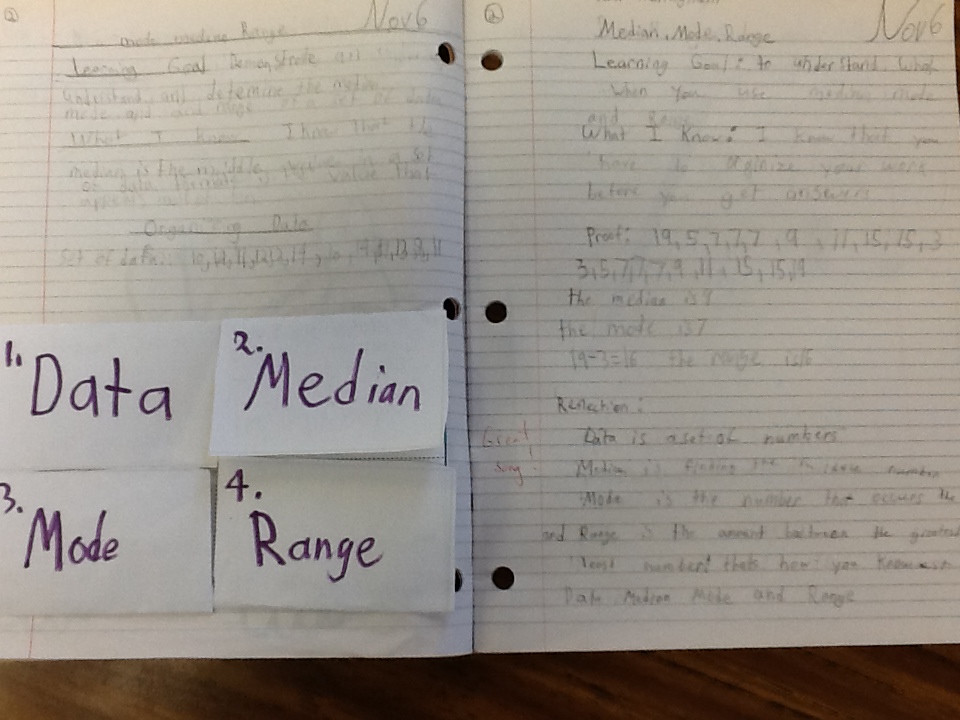 Nov 6
mode median Range
Learning Goal Demonstrate an
understand and determine the median
mode and range of a set of data
What I know I know that the
median is the middle value in a set
of data value that
Organizing Data
Set of data:
1. Data
2. Median
3. Mode
4. Range
Nov 6
Median, Mode, Range
Learning Goal: to understand what
when you use median mode
and Range
What I Know: I know that you
have to orginize your work
before you get answers
Proof: 19, 5, 7, 7, 7, 9, 11, 15, 15, 3
3, 5, 7, 7, 7, 9, 11, 15, 15, 19
the median is 9
the mode is 7
19-3=16 the range is 16
Reflection:
Data is a set of numbers
Great
song!
Median is finding the middle number
Mode is the number that occurs the
and Range is the amount between the greatest
least number! thats how you Know
Data Median Mode and Range